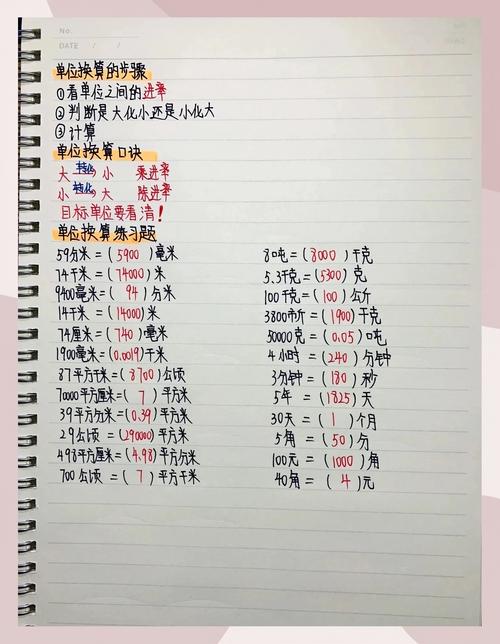 No.
DATE / /
单位换算的步骤
①看单位之间的进率
②判断是大化小还是小化大
③计算
单位换算口诀
大 转化→ 小 乘进率
小 转化→ 大 除进率
目标单位要看清！
单位换算练习题
59分米=(5900)毫米
74千米=(74000)米
9400毫米=(94)分米
14千米=(14000)米
74厘米=(740)毫米
1900毫米=(0.0019)千米
87平方千米=(8700)公顷
70000平方厘米=(7)平方米
39平方分米=(0.39)平方米
29公顷=(290000)平方米
498平方厘米=(4.98)平方分米
700公顷=(7)平方千米
8吨=(8000)千克
5.3千克=(5300)克
100千克=(100)公斤
3800市斤=(1900)千克
50000克=(0.05)吨
4小时=(240)分钟
3分钟=(180)秒
5年=(1825)天
30天=(1)个月
5角=(50)分
100元=(1000)角
40角=(4)元